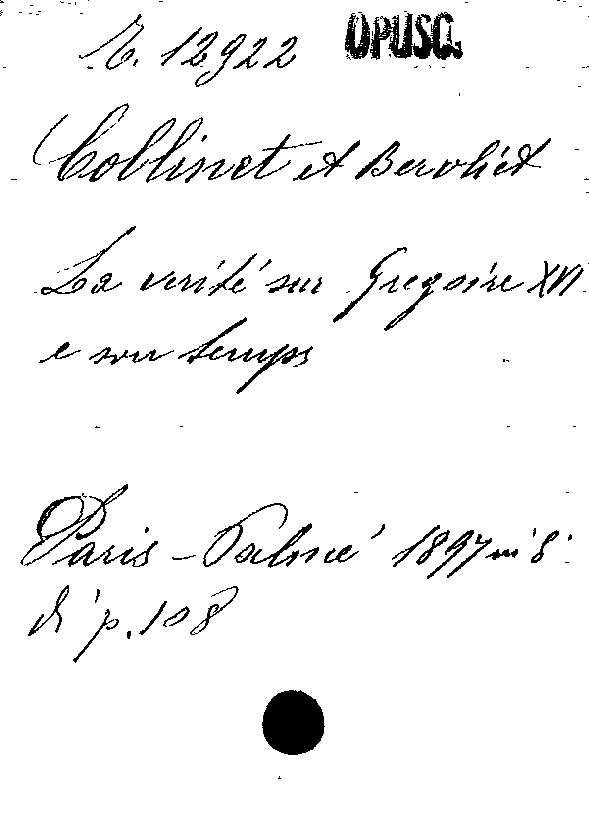 E. 12922 OPUSC.
Collinet et Bervliet
La verité sur Gregoire XVI
e son temps
Paris - Palmé 1897 in 8°
di p. 108